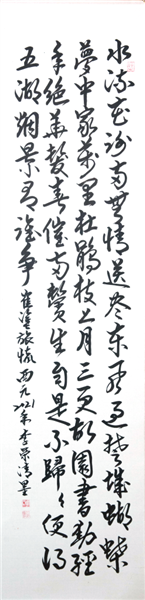 水流花謝兩無情送盡東風過楚城蝴蝶
夢中家萬里杜鵑枝上月三更故園書動經
年絕華髮春催兩鬢生自是不歸々便得
五湖烟景有誰爭 崔塗旅懷 西元2021年 李榮清墨